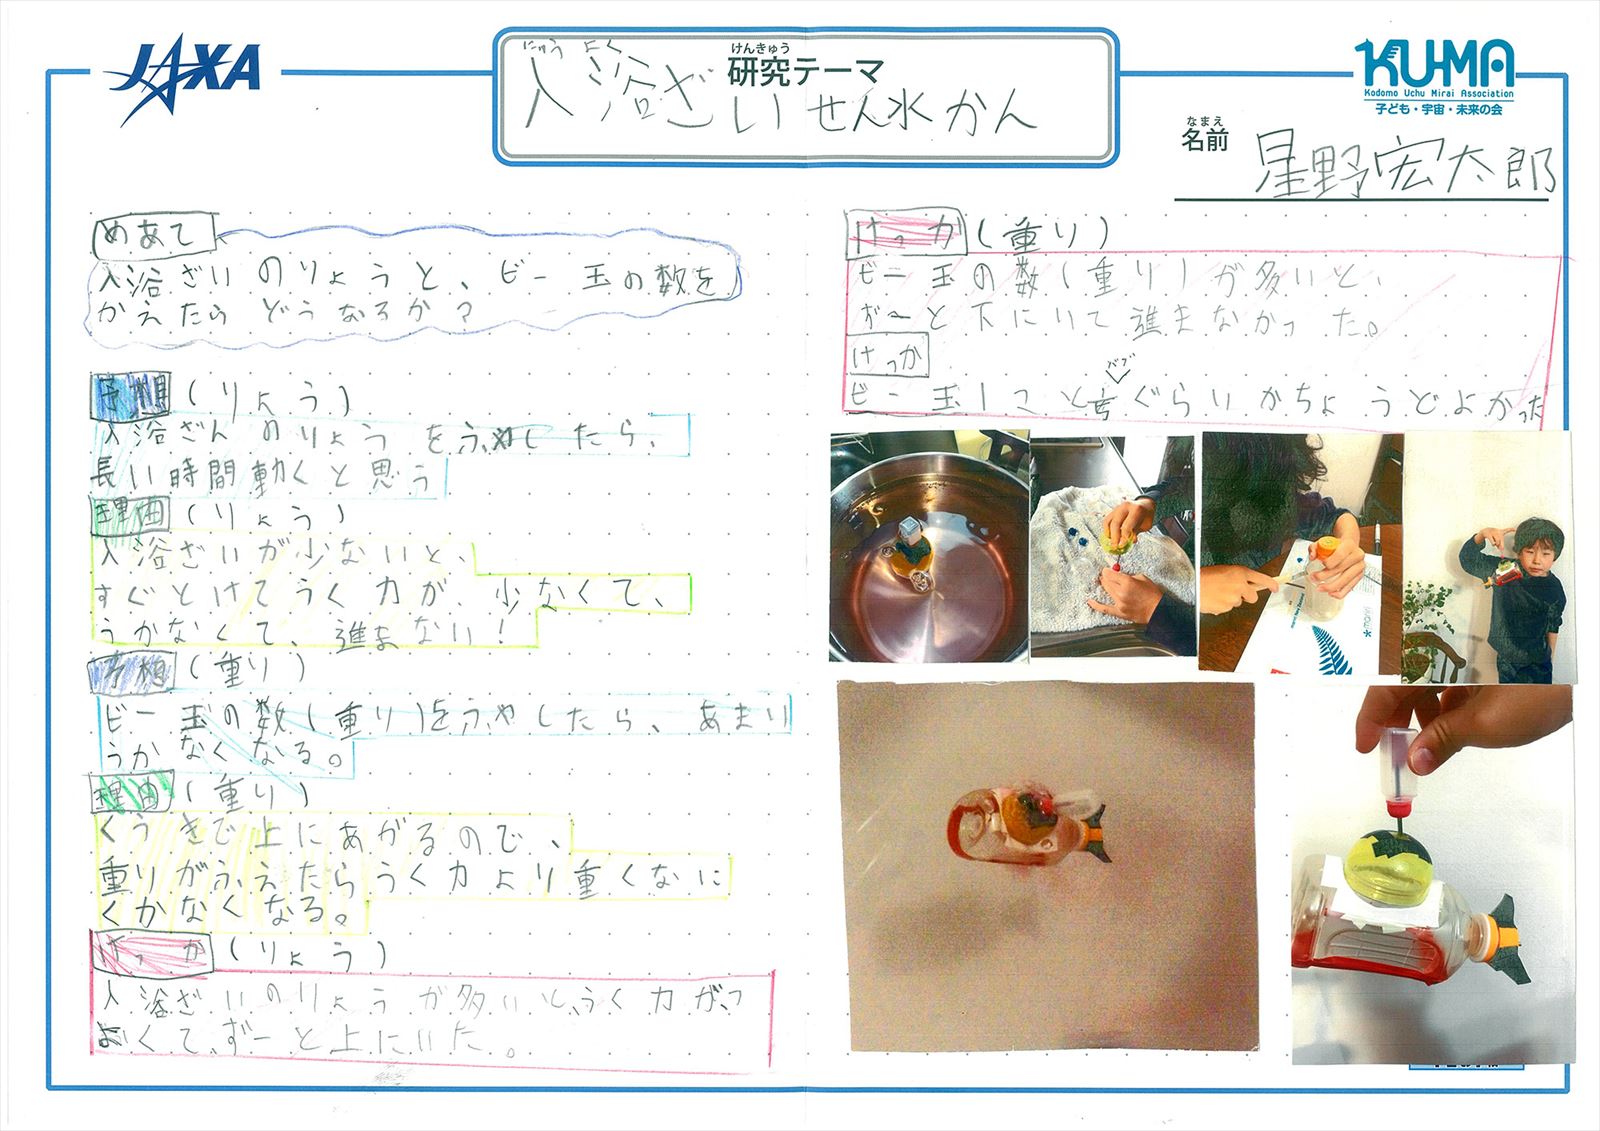 JAXA
けんきゅう
研究テーマ
にゅう よく
入浴ざいせん水かん
KU-MA
Kodomo Uchu Mirai Association
子ども・宇宙・未来の会
なまえ
名前
星野宏太郎
めあて
入浴ざいのりょうと、ビー玉の数を
かえたらどうなるか?
予想(りょう)
入浴ざんのりょうをふやしたら、
長い時間動くと思う
理由(りょう)
入浴ざいが少ないと、
すぐとけてうく力が、少なくて、
うかなくて、進まない!
予想(重り)
ビー玉の数(重り)をふやしたら、あまり
うかなくなる。
理由(重り)
くうきで上にあがるので、
重りがふえたらうく力より重くなに
くかなくなる。
けっか(りょう)
入浴ざいのりょうが多いと、うく力がつ
よくてずーと上にいた。
けっか(重り)
ビー玉の数(重り)が多いと、
ずーと下にいて進まなかった。
けっか
バブ
ビー玉1こと ぐらいがちょうどよかった